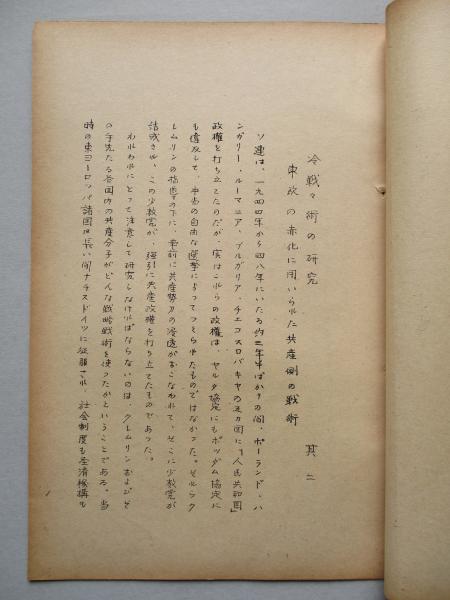 冷戦々術の研究
東欧の赤化に用いられた共産側の戦術　其二
ソ連は、一九四四年から四八年にいたる約三年半ばかりの間、ポーランド、ハ
ンガリー、ルーマニア、ブルガリア、チェコスロバキヤの五カ国に「人民共和国」
政権を打ち立てたのだが、実はこれらの政権は、ヤルタ協定にもポツダム協定に
も違反して、本当の自由な選挙によってつくられたものではなかった。ゼルラク
レムリンの指の下に、事前に共産勢力の浸透がおこなわれて、そこに少数党が
結成され、この少数党が、強引に共産政権を打ち立てたものであった。
われわれにとって注意して研究しなければならないのは、クレムリンおよびそ
の手先たる各国内の共産分子がどんな戦略戦術を使ったかということである。当
時の東ヨーロッパ諸国は長い間ナチスドイツに征服され、社会制度も経済機構も